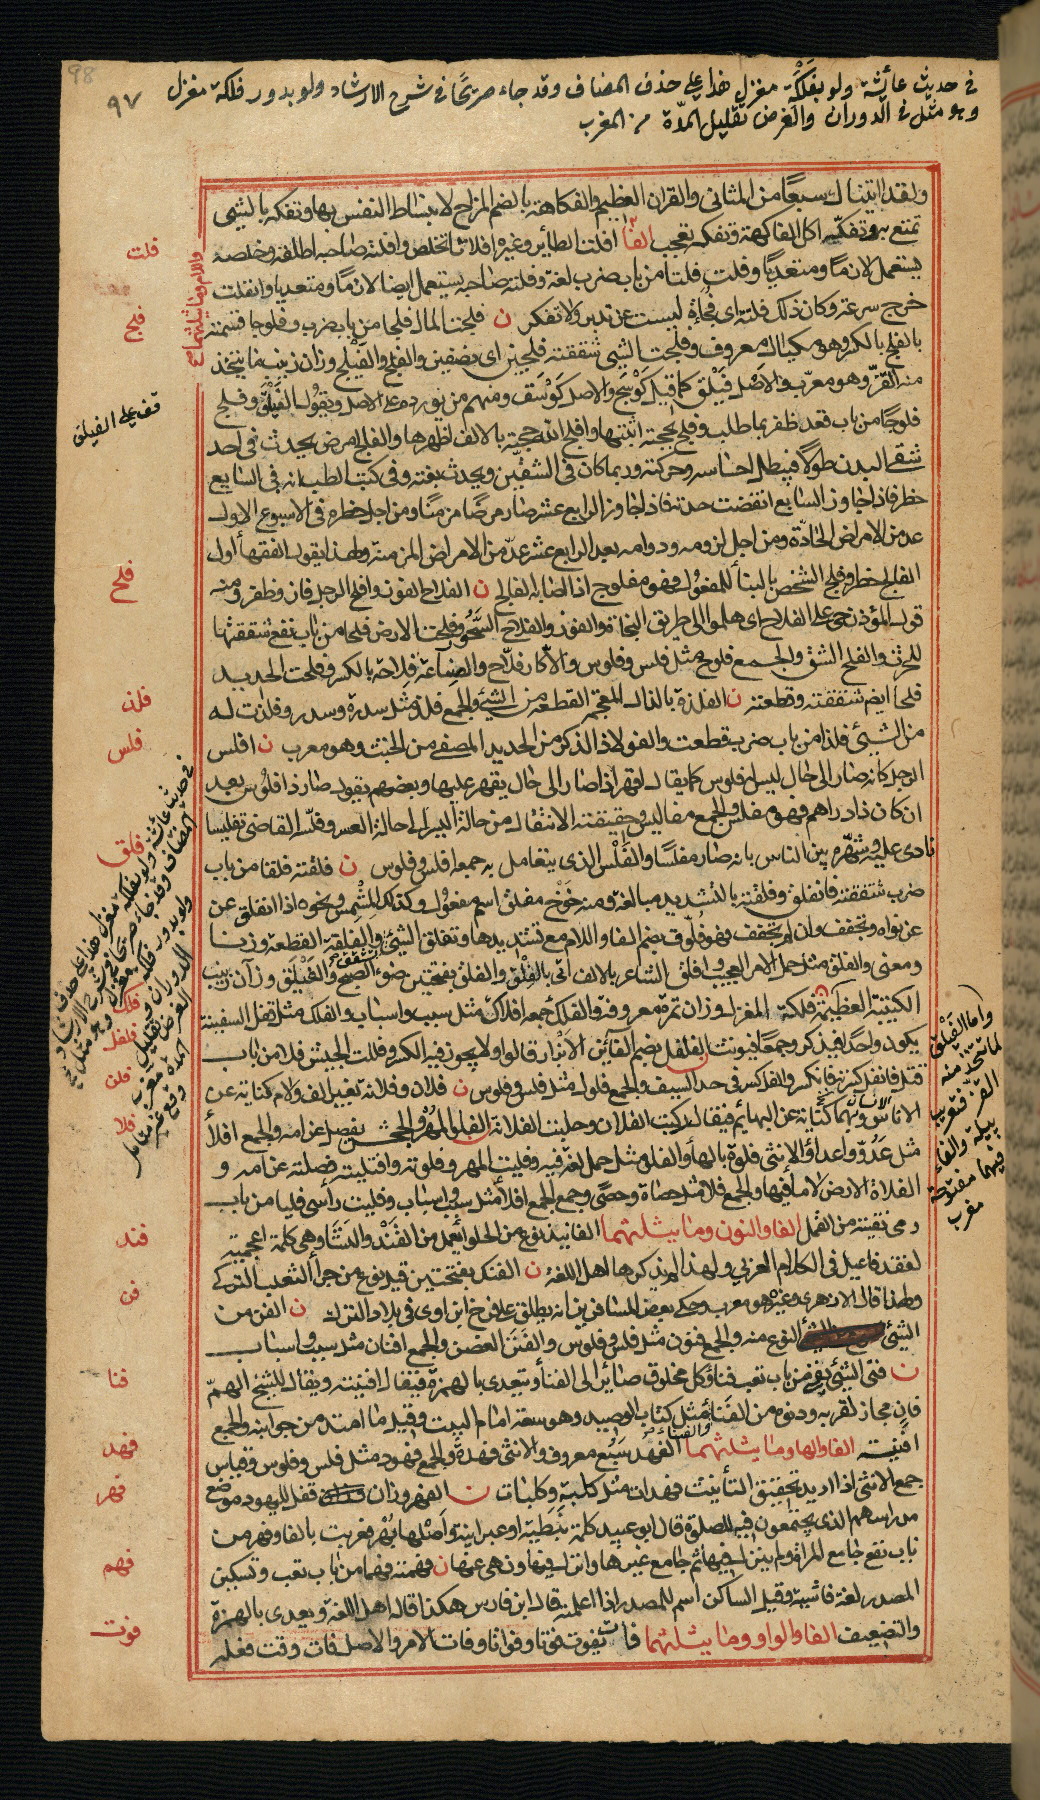 98
٩٧
في حديث عائشة ولو بفلكة مغزل هذا على حذف المضاف وقد جاء صريحًا في شرح الارشاد ولو بدور فلكة مغزل
وهو مثل في الدوران والغرض تقليل المدّة من المغرب
ولقد اتيناك سبعًا من المثاني والقران العظيم والفكاهة بالضم المزاح لانبساط النفس بها وتفكه بالشيى
تمتع به وتفكّه اكل الفاكهة وتفكه تعجب الفا افلت الطائر وغيره افلاتا تخلص وافلته صاحبه اطلقه وخلصه
واللام وما يثلثهما
يستعمل لازمًا ومتعديًا وفلت فلتا من باب ضرب لغة وفلته صاحبه يستعمل ايضا لازمًا ومتعديا وانفلت
خرج سرعة وكان ذلك فلتة اى فجاءة ليست عن تدبر ولا تفكر ن فلجت المال فلجا من باب ضرب وفلوجا قسمته
بالفلج بالكسر وهو مكيال معروف وفلجت الشيى شققته فلجين اى نصفين والفلج والفيلج وزان زينب ما يتخذ
منه القزّ وهو معرّب والاصل فيلق كما قيل كوسج والاصل كوسق ومنهم من يورده على الاصل ويقول الفيلق وفلج
فلوجًا من باب قعد ظفر بما طلب وفلج بحجته اثبتها وافلج الله حجته بالالف اظهرها والفالج مرض يحدث في احد
شقى البدن طولًا فيبطل احساسه وحركته وربما كان في الشقين ويحدث بغتة وفي كتب الطب انه في السابع
خطر فاذا جاوز السابع انقضت حدته فاذا جاوز الرابع عشر صار مرضًا مزمنًا ومن اجل خطره في الاسبوع الاول
عد من الامراض الحادّة ومن اجل لزومه ودوامه بعد الرابع عشر عدّ من الامراض المزمنة ولهذا يقول الفقهأ اول
الفالج خطر وفلج الشخص بالبنأ للمفعول فهو مفلوج اذا اصابه الفالج ن الفلاح الفوز وافلح الرجل فاز وظفر ومنه
قول المؤذن حى على الفلاح اى هلموا الى طريق النجاة والفوز والفلاح السحور وفلحت الارض فلحا من باب نفع شققتها
للحرث والفلح الشق والجمع فلوح مثل فلس وفلوس والاكار فلاح والصناعة فلاحة بالكسر وفلحت الحديد
فلحا ايضم شققته وقطعته ن الفلذة بالذال المعجم القطعة من الشيئ والجمع فلذ مثل سدرة وسدر وفلذت له
من الشيئ فلذا من باب ضرب قطعت والفولاذ الذكر من الحديد المصفى من الخبث وهو معرب ن افلس
الرجل كانه صار الى حال ليس له فلوس كما يقال اقهر اذا صار الى حال يقهر عليها وبعضهم يقول صار ذا فلوس بعد
ان كان ذا دراهم فهو مفلس والجمع مفاليس وحقيقته الانتقال من حالة اليسر الى حالة العسر وفلّسه القاضى تفليسا
نادى عليه وشهّره بين الناس بانه صار مفلسًا والفلس الذى يتعامل به جمعه افلس وفلوس ن فلقته فلقا من باب
ضرب شققته فانفلق وفلقته بالتشديد مبالغة ومنه خوخ مفلق اسم مفعول وكذلك المشمس ونحوه اذا انفلق عن
عن نواه وتجفف وان لم يتجفف فهو فلّوق بضم الفا واللام مع تشديدها وتفلق الشيئ تشقق والفلقة القطعة وزنا
ومعنى والفلق مثل حمل الامر العجيب وافلق الشاعر بالالف اتى بالفلق والفلق بفتحتين ضوء الصبح والفيلق وزان زينب
الكتيبة العظيمة فلكة المغزل وزان تمرة معروفة والفلك جمعه افلاك مثل سبب واسباب والفلك مثل قفل السفينة
يكون واحدًا فيذكر وجمعًا فيونث الفلفل بضم الفائين الابزار قالوا ولا يجوز فيه الكسر وفللت الجيش فلا من باب
قتل فانفل كسرته فانكسر والفل كسر في حد السيف والجمع فلول مثل فلس وفلوس ن فلان وفلانة بغير الف ولام كناية عن
الاناسى وبهما كناية عن البهائم فيقال ركبت الفلان وحلبت الفلانة الفلو المهر والجحش يفصل عن امه والجمع افلأ
مثل عدوّ واعدأ والانثى فلوة بالهأ والفلو مثل حمل لغة فيه وفليت المهر وفلوته وافتليته فصلته عن امه و
الفلاة الارض لا مأ فيها والجمع فلا مثل حصاة وحصًى وجمع الجمع افلأ مثل سبب واسباب وفليت رأسى فليا من باب
رمى نقيته من القمل الفا والنون وما يثلثهما الفانيذ نوع من الحلوا يعمل من القند والنشا وهى كلمة اعجمية
لفقد فاعيل في الكلام العربي ولهذا لم يذكرها اهل اللغة ن الفنك بفتحتين قيل نوع من جرأ الثعلب التركى
ولهذا قال الازهرى وغيره هو معرب وحكى بعض المسافرين انه يطلق على فرخ ابن اوى في بلاد الترك ن الفن من
الشيئ النوع منه والجمع فنون مثل فلس وفلوس والفنن الغصن والجمع افنان مثل سبب واسباب
ن فنى الشيئ يفنى من باب تعب فنأ وكل مخلوق صائر الى الفنأ ويتعدى بالهمزة فيقال افنيته ويقال للشيخ الهمّ
فان مجاز لقربه ودنوه من الفنا والفناء مثل كتاب الوصيد وهو سعة امام البيت وقيل ما امتد من جوانبه والجمع
افنية الفا والها وما يثلثهما الفهد سبع معروف والانثى فهدة والجمع فهود مثل فلس وفلوس وقياس
جمع الانثى اذا اريد تحقيق التأنيث فهدات مثل كلبة وكلبات ن الفهر وزان قفل لليهود موضع
مدراسهم الذى يجتمعون فيه للصلوة قال ابو عبيد كلمة نبطية او عبرانية واصلها بهر فعربت بالفا وفهر من
باب نفع جامع المراة ولم ينزل فيها ثم جامع غيرها وانزل فيها ونهى عنها ن فهمته فهما من باب تعب وتسكين
المصدر لغة فاشية وقيل الساكن اسم للمصدر اذا اعلمته قال ابن فارس هكذا قاله اهل اللغة ويعدى بالهمزة
والتضعيف الفا والواو وما يثلثهما فات يفوت فوتا وفواتا وفات الامر والاصل فات وقت فعله
فلت
فلج
قف على الفيلق
فلح
فلذ
فلس
فلق
في حديث عائشة ولو بفلكة مغزل هذا على حذف
المضاف وقد جاء صريحًا في شرح الارشاد
ولو بدور فلكة مغزل وهو مثل في
الدوران والغرض تقليل
المدة مغرب
فلك
فلفل
فلن
فلا
واما الفيلق
لما يتخذ منه
القز فتعريب
پيله والفاء
فيهما مفتوحة
مغرب
فند
فن
فنا
فهد
فهر
فهم
فوت